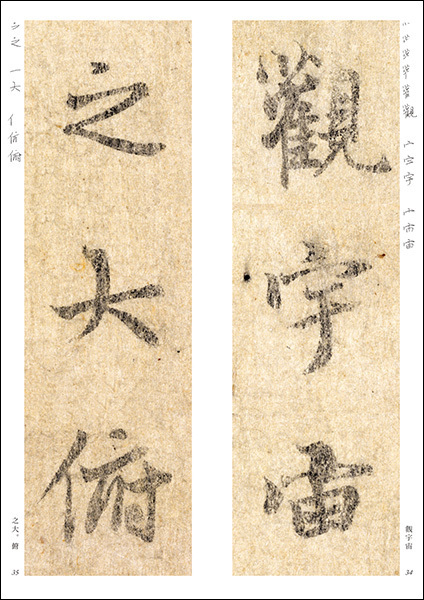 觀宇宙
觀宇宙
34
之大俯
之大、俯
35